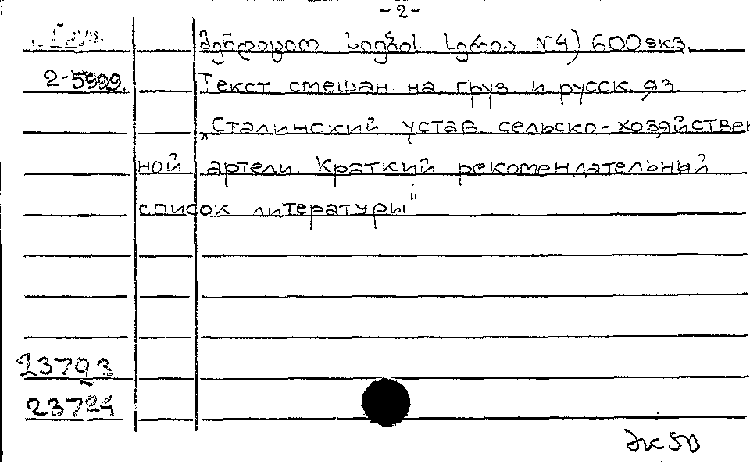 -2-
სიების სერია N4) 600 экз.
2-5999. Текст смешан на груз и русск. яз
„Сталинский устав сельско-хозяйствен
ной артели. Краткий рекомендательный
список литературы"
23793
23794